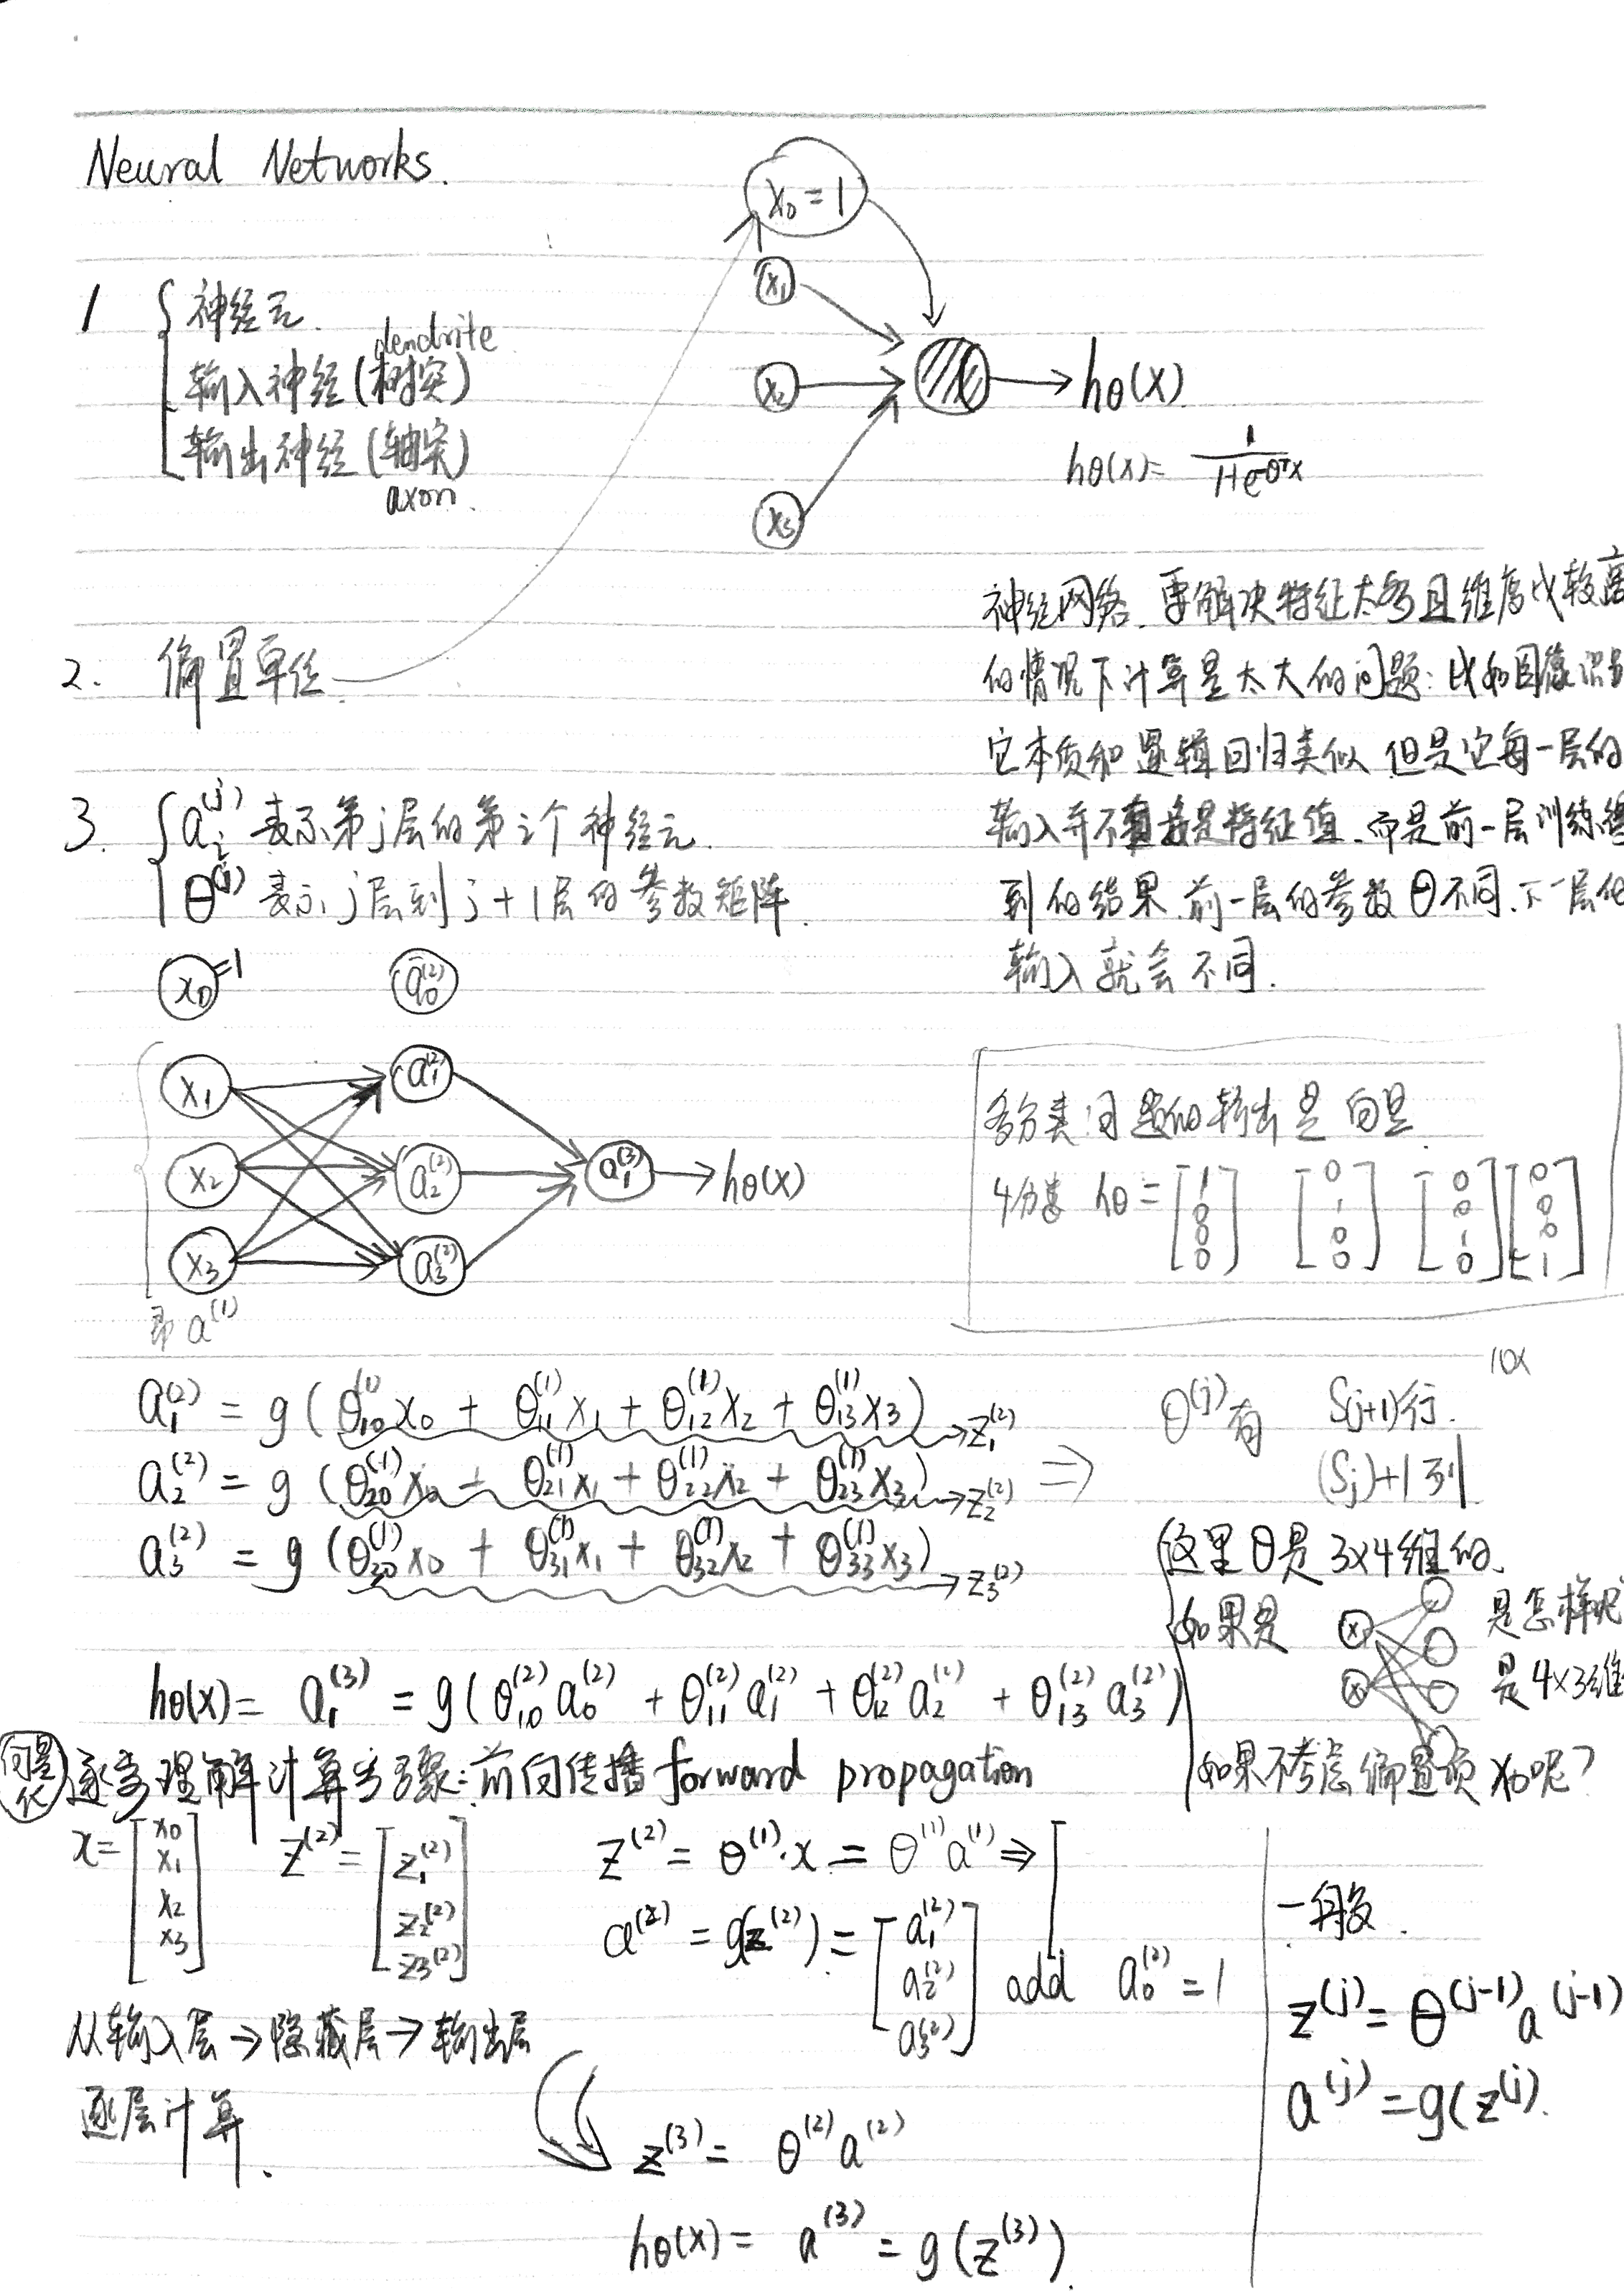 Neural Networks.
x₀ = 1
x₁
x₂
x₃
hθ(x)
hθ(x) = 1/(1+e^-θᵀx)
1 神经元.
dendrite
输入神经(树突)
输出神经(轴突)
axon.
2. 偏置单位
神经网络.要解决特征太多且维度比较高
的情况下计算量太大的问题:比如图像识别
它本质和逻辑回归类似 但是它每一层的
输入并不直接是特征值.而是前一层训练得
到的结果.前一层的参数θ不同.下一层的
输入就会不同.
3. aᵢ^(j) 表示第j层的第i个神经元.
θ^(j) 表示j层到j+1层的参数矩阵.
x₀=1 a₀^(2)
x₁ a₁^(2)
x₂ a₂^(2) a₁^(3) hθ(x)
x₃ a₃^(2)
即a^(1)
多分类问题的输出是向量
4分类 hθ = [1 0 0 0] [0 1 0 0] [0 0 1 0] [0 0 0 1]
a₁^(2) = g(θ₁₀^(1)x₀ + θ₁₁^(1)x₁ + θ₁₂^(1)x₂ + θ₁₃^(1)x₃) → z₁^(2)
a₂^(2) = g(θ₂₀^(1)x₀ + θ₂₁^(1)x₁ + θ₂₂^(1)x₂ + θ₂₃^(1)x₃) → z₂^(2) ⇒
a₃^(2) = g(θ₃₀^(1)x₀ + θ₃₁^(1)x₁ + θ₃₂^(1)x₂ + θ₃₃^(1)x₃) → z₃^(2)
10x
θ^(j)有 S(j+1)行.
(Sj)+1列
这里θ是3x4维的.
如果是 x₁ x 是怎样呢
是4x3维
如果不考虑偏置项x₀呢?
hθ(x) = a₁^(3) = g(θ₁₀^(2)a₀^(2) + θ₁₁^(2)a₁^(2) + θ₁₂^(2)a₂^(2) + θ₁₃^(2)a₃^(2))
向量化
逐步理解计算步骤:前向传播 forward propagation
x = [x₀ x₁ x₂ x₃] z^(2) = [z₁^(2) z₂^(2) z₃^(2)]
z^(2) = θ^(1)·x = θ^(1)a^(1) ⇒
a^(2) = g(z^(2)) = [a₁^(2) a₂^(2) a₃^(2)] add a₀^(2) = 1
从输入层→隐藏层→输出层
逐层计算.
z^(3) = θ^(2)a^(2)
hθ(x) = a^(3) = g(z^(3)).
一般.
z^(j) = θ^(j-1)a^(j-1)
a^(j) = g(z^(j).